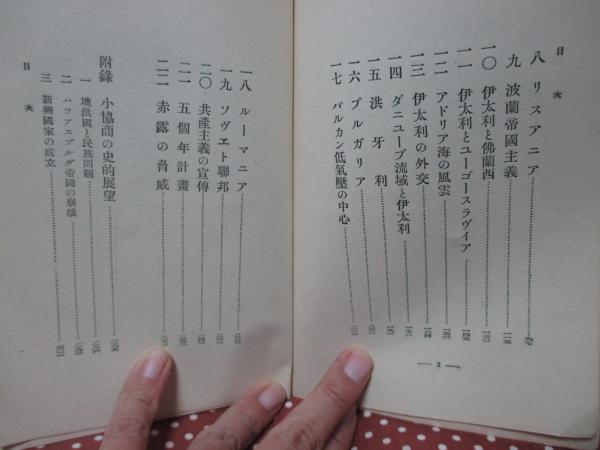 目次
八 リスアニア
九 波蘭帝國主義
一〇 伊太利と佛蘭西
一一 伊太利とユーゴースラヴイア
一二 アドリア海の風雲
一三 伊太利の外交
一四 ダニユーブ流域と伊太利
一五 洪牙利
一六 ブルガリア
一七 バルカン低氣壓の中心
— 2 —
一八 ルーマニア
一九 ソヴエト聯邦
二〇 共產主義の宣傳
二一 五個年計畫
二二 赤露の脅威
附錄 小協商の史的展望
一 墺洪國と民族問題
二 ハツプスブルグ帝國の崩壞
三 新興國家の成立
目次